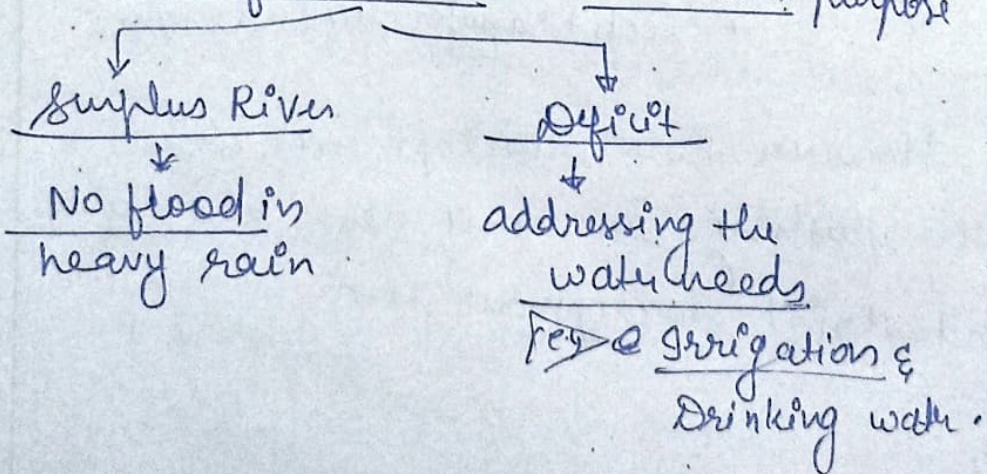 purpose
Surplus River
Deficit
No flood in
heavy rain.
addressing the
water needs.
eg Irrigation &
Drinking water.